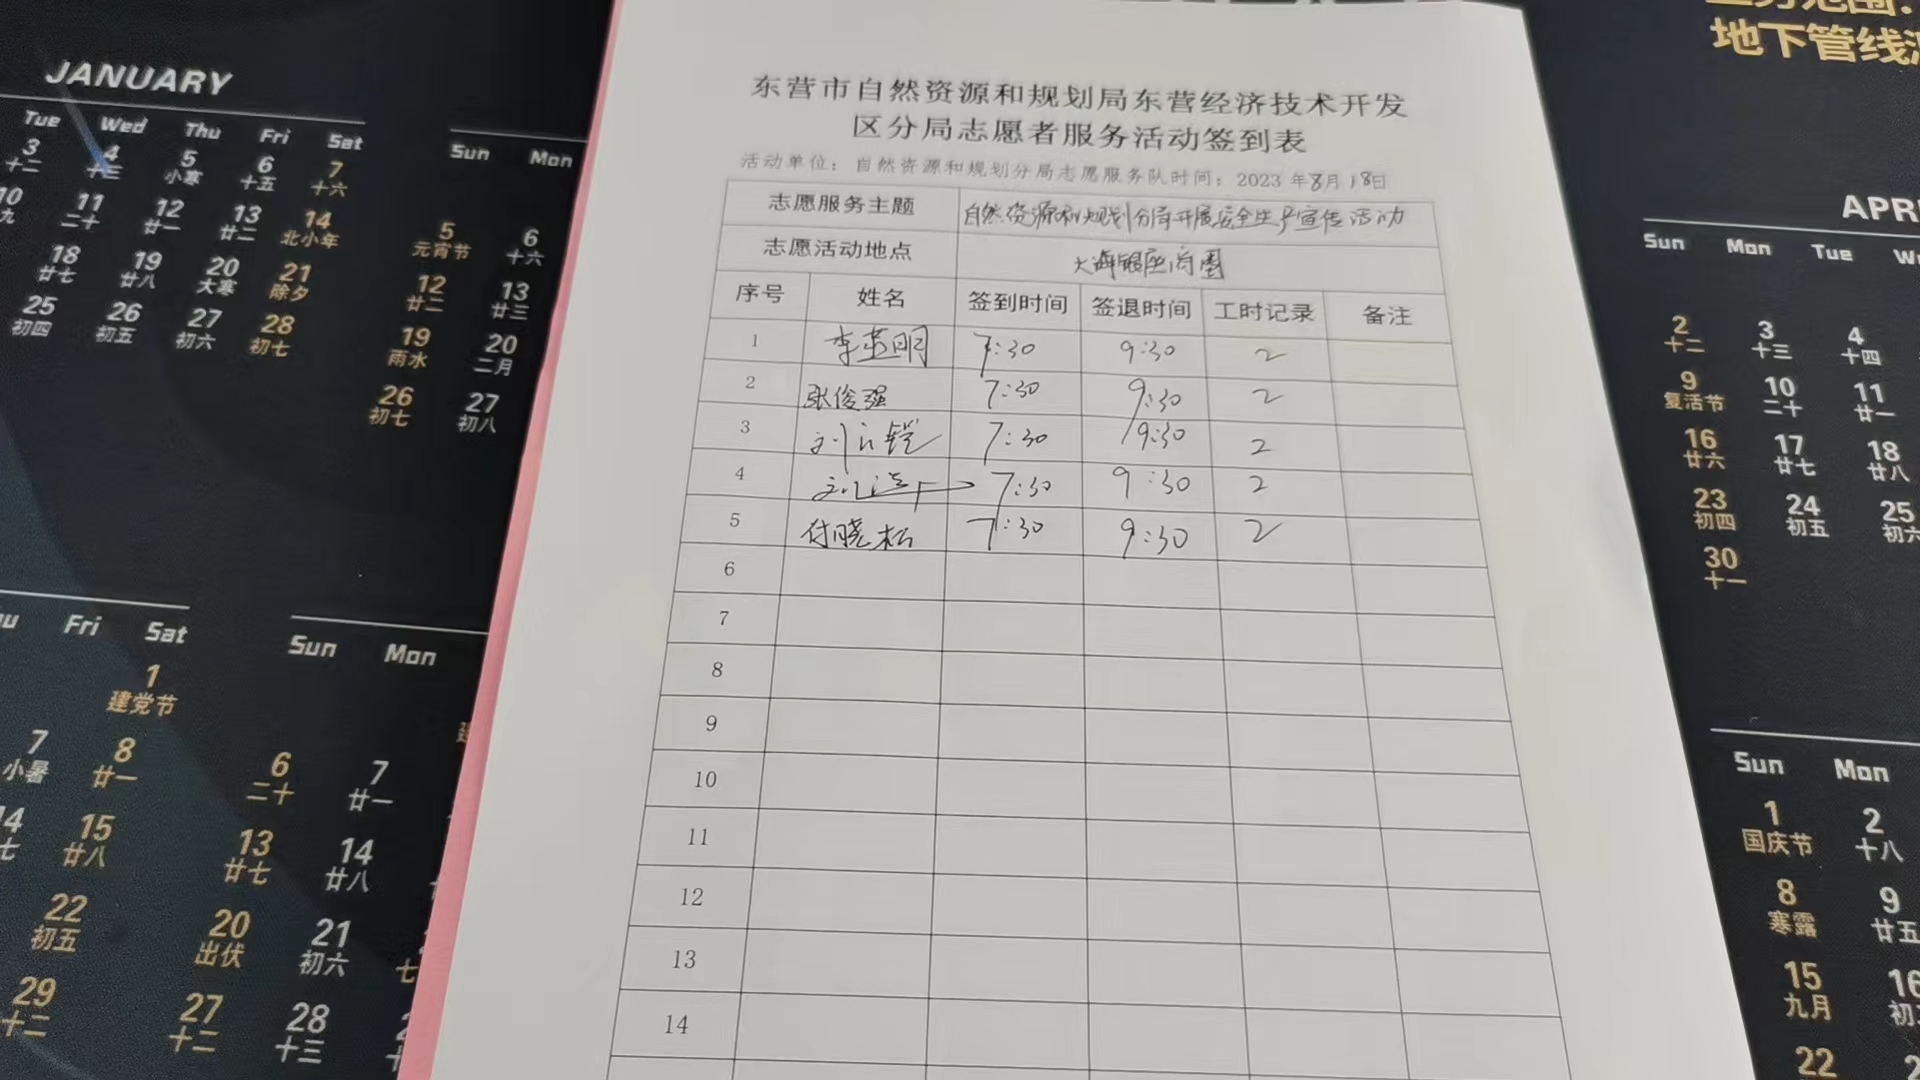 东营市自然资源和规划局东营经济技术开发
区分局志愿者服务活动签到表
活动单位：自然资源和规划分局志愿服务队时间：2023 年8月18日
志愿服务主题 自然资源和规划分局开展安全生产宣传活动
志愿活动地点 大海银座商圈
序号 姓名 签到时间 签退时间 工时记录 备注
1 李 明 7:30 9:30 2
2 张俊强 7:30 9:30 2
3 刘 7:30 9:30 2
4 刘 7:30 9:30 2
5 付晓松 7:30 9:30 2
6
7
8
9
10
11
12
13
14
JANUARY
Tue Wed Thu Fri Sat
3 4 5 6 7
十二 十三 小寒 十五 十六
10 11 12 13 14
九 二十 廿一 廿二 北小年
18 19 20 21
廿七 廿八 大寒 除夕
25 26 27 28
初四 初五 初六 初七
Sun Mon
5 6
元宵节 十六
12 13
廿二 廿三
19 20
雨水 二月
26 27
初七 初八
Fri Sat
1
建党节
7 8
小暑 廿一
15
廿八
22
初五
29
十二
Sun Mon
6 7
二十 廿一
13 14
廿七 廿八
20 21
出伏 初六
27 28
十二 十三
地下管线
APR
Sun Mon Tue
2 3 4
十二 十三 十四
9 10 11
复活节 二十 廿一
16 17 18
廿六 廿七 廿八
23 24 25
初四 初五 初六
30
十一
Sun Mon
1 2
国庆节 十八
8 9
寒露 廿五
15 16
九月 初
22